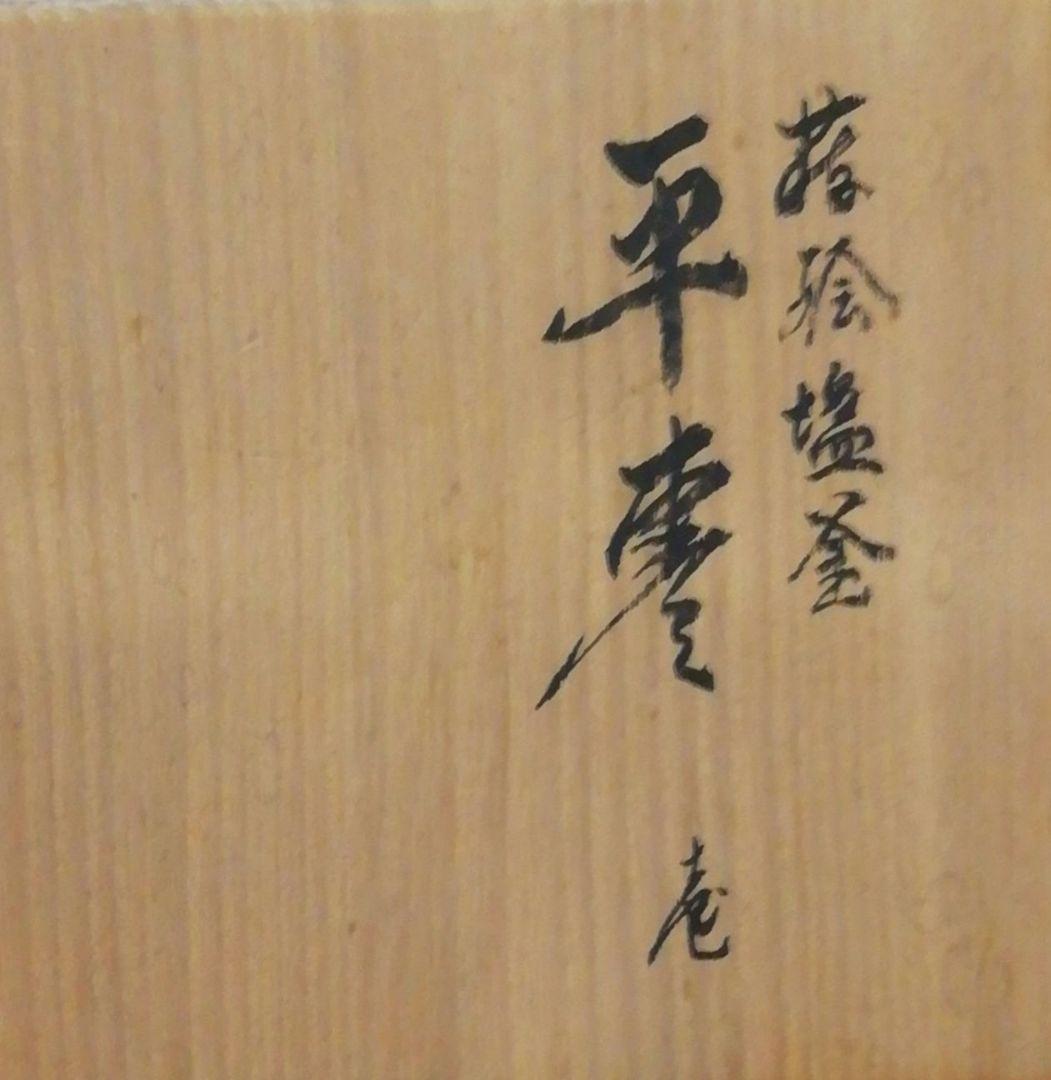 蒔絵塩釜
平棗 壱